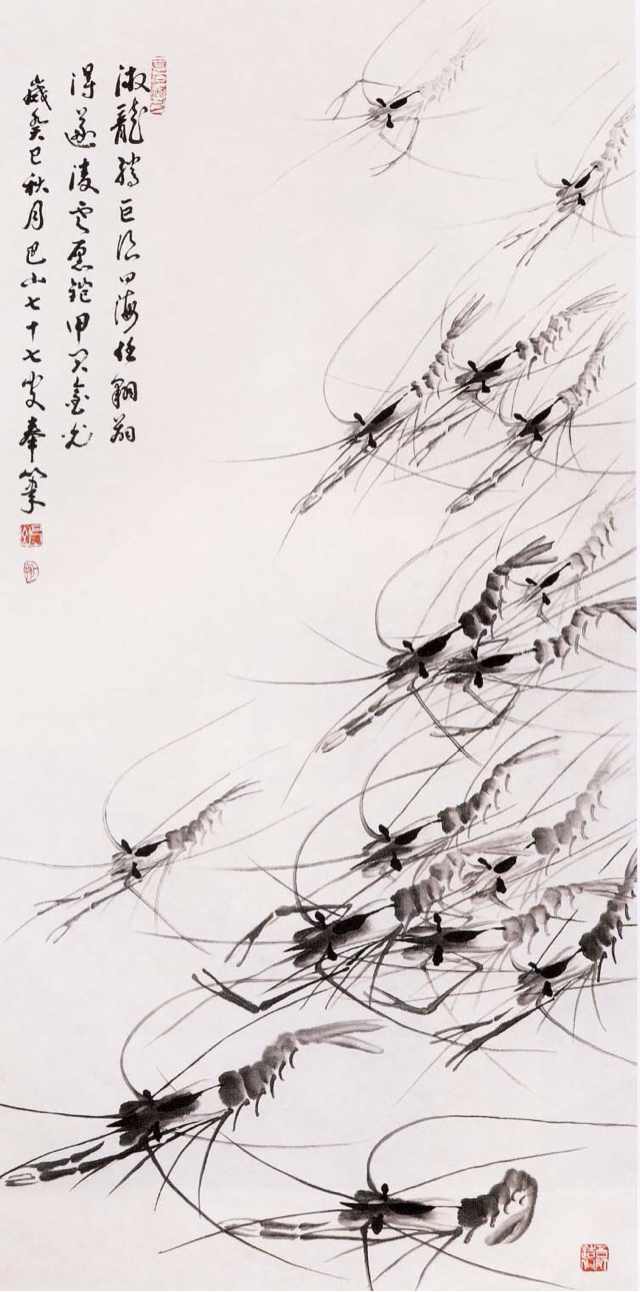 淑龍騰巨浪四海任翱翔
得遂凌雲愿鎧甲閃金光
歲癸巳秋月巴山七十七叟奉筆